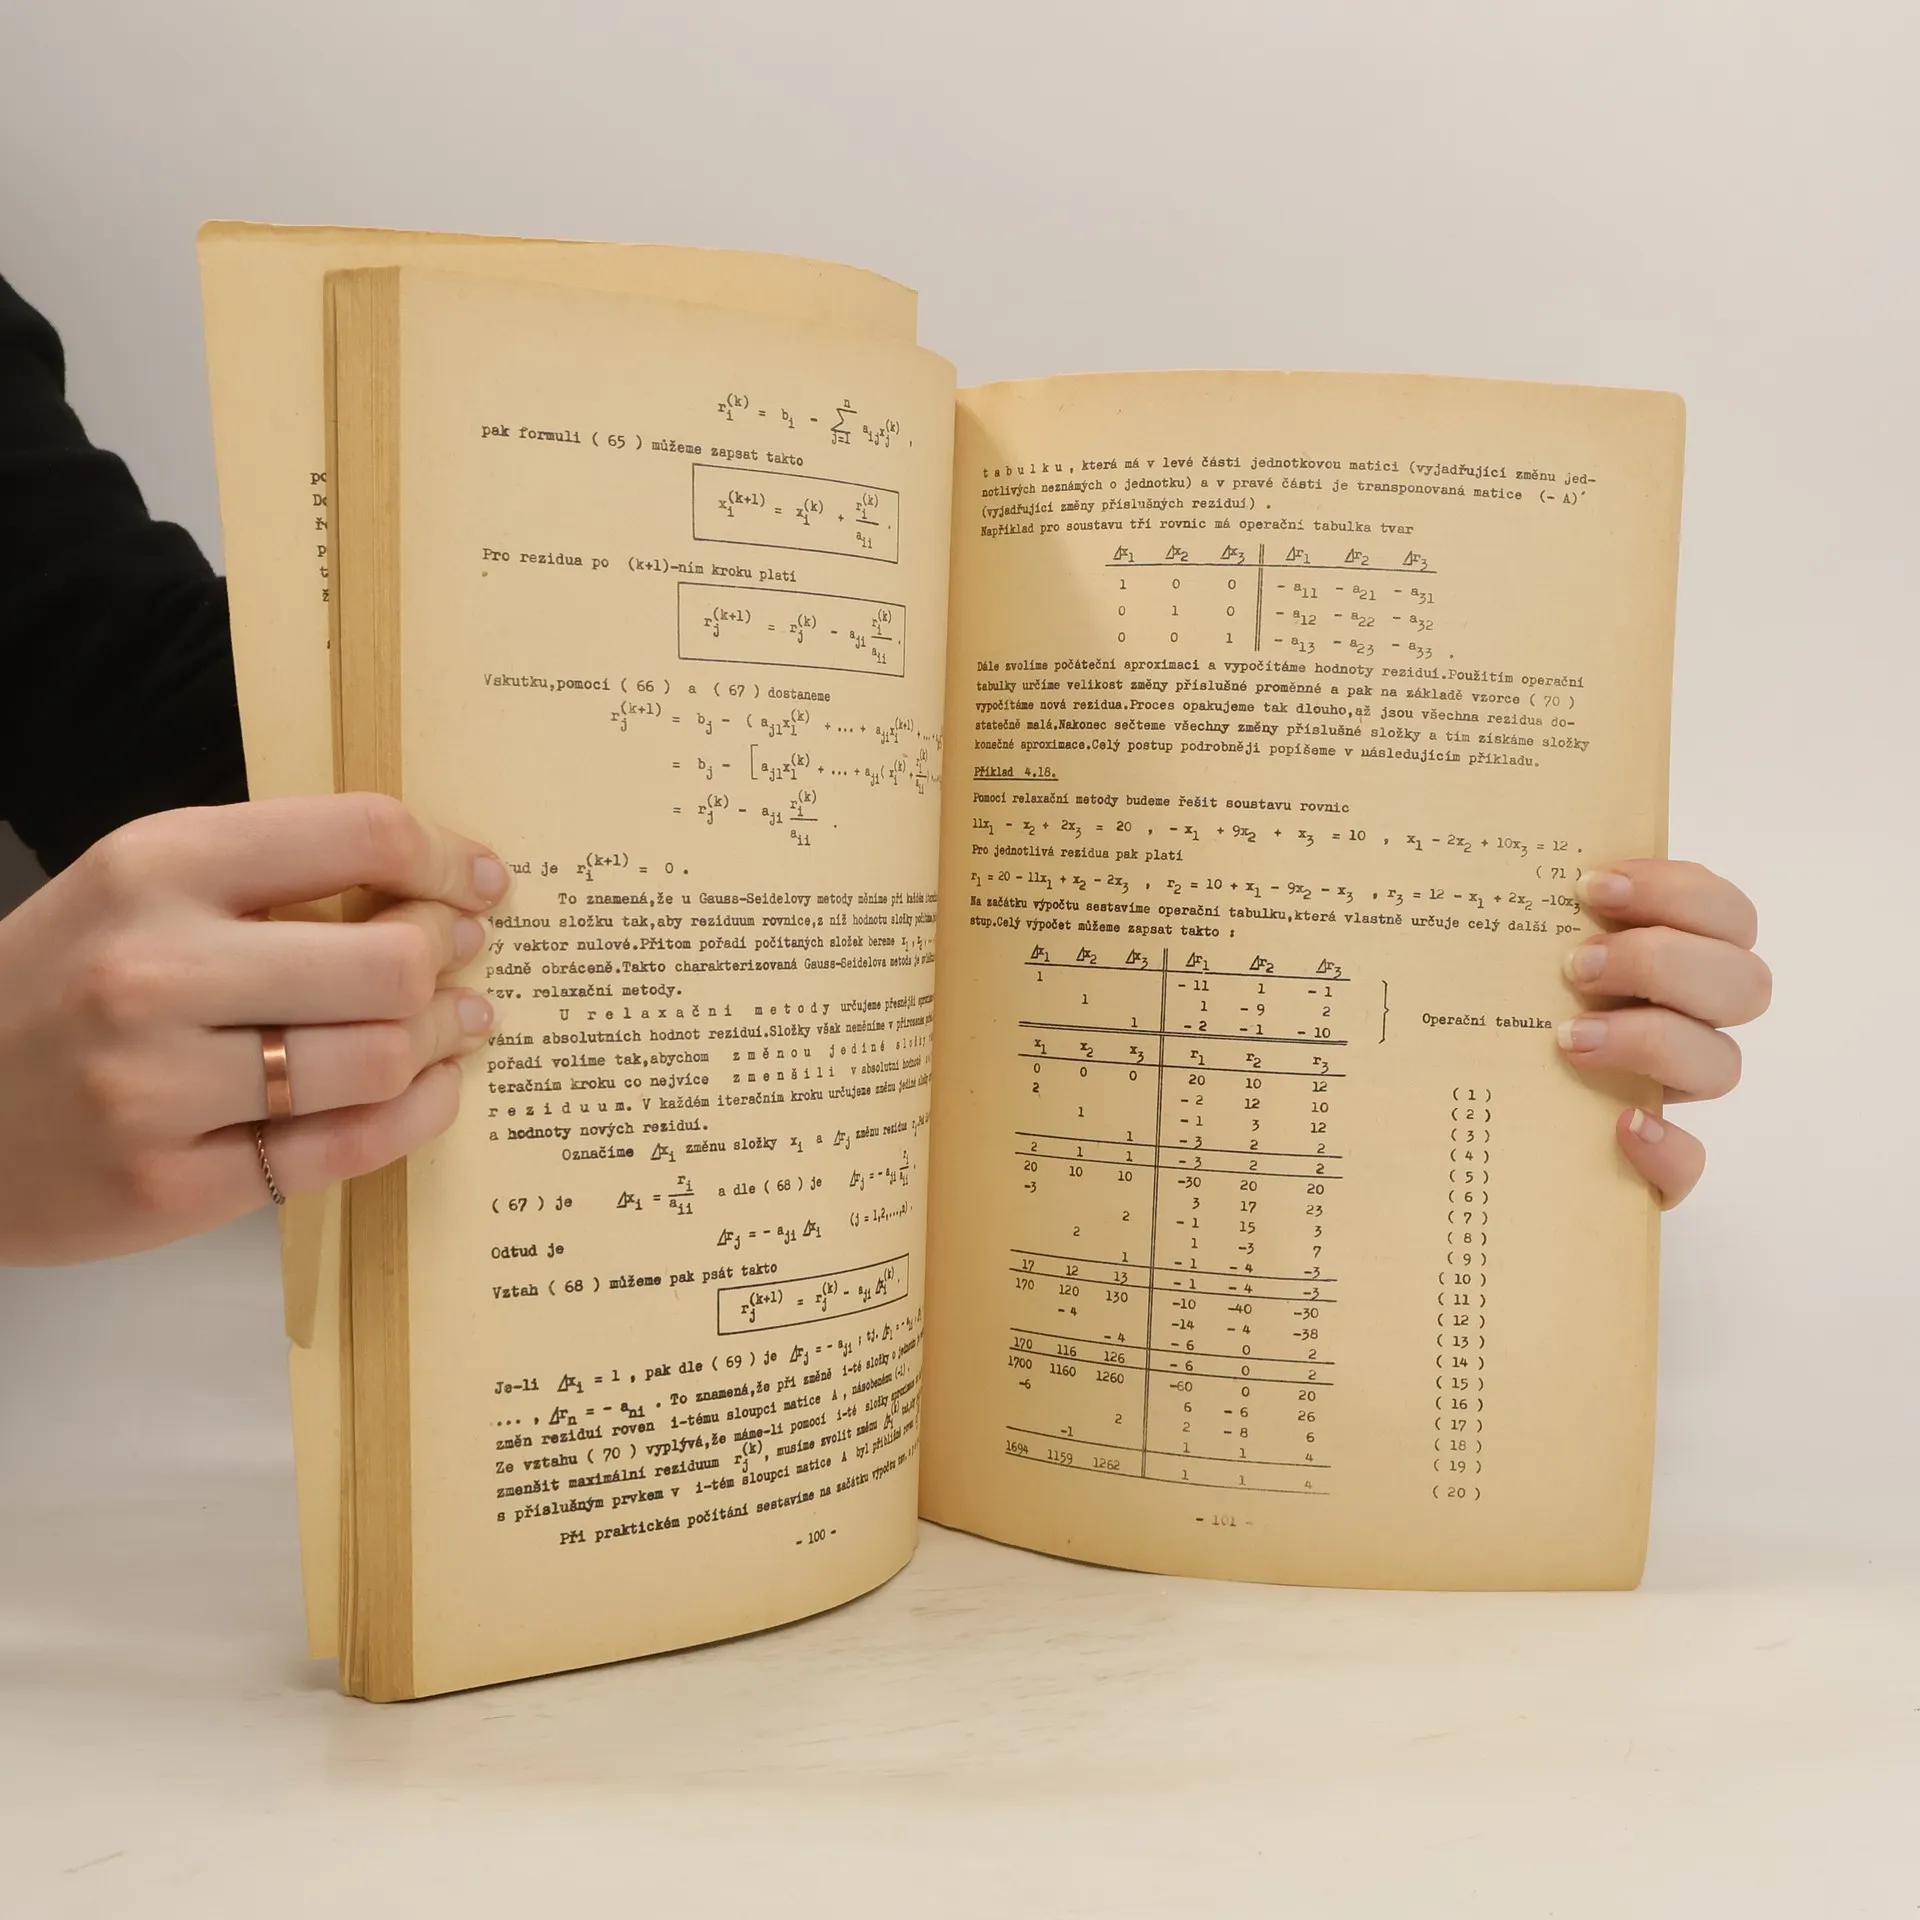 r_i^(k) = b_i - \sum_{j=1}^{n} a_ij x_j^(k) ,
pak formuli ( 65 ) můžeme zapsat takto
x_i^(k+1) = x_i^(k) + r_i^(k) / a_ii .
Pro rezidua po (k+1)-ním kroku platí
r_j^(k+1) = r_j^(k) - a_ji r_i^(k) / a_ii .
Vskutku,pomocí ( 66 ) a ( 67 ) dostaneme
r_j^(k+1) = b_j - ( a_j1 x_1^(k) + ... + a_ji x_i^(k+1) + ...
= b_j - [ a_j1 x_1^(k) + ... + a_ji ( x_i^(k) + r_i^(k) / a_ii ) + ...
= r_j^(k) - a_ji r_i^(k) / a_ii .
ud je r_i^(k+1) = 0 .
To znamená,že u Gauss-Seidelovy metody měníme při každém
jedinou složku tak,aby reziduum rovnice,z níž hodnotu složky
vý vektor nulové.Přitom pořadí počítaných složek bereme x_1 ,
padně obráceně.Takto charakterizovaná Gauss-Seidelova metoda je
tzv. relaxační metody.
U r e l a x a č n í m e t o d y určujeme přesnější
váním absolutních hodnot reziduí.Složky však neměníme v přirozeném
pořadí volíme tak,abychom z m ě n o u j e d i n é s l o ž k y
teračním kroku co nejvíce z m e n š i l i v absolutní hodnotě
r e z i d u u m. V každém iteračním kroku určujeme změnu jediné složky
a hodnoty nových reziduí.
Označíme Δx_i změnu složky x_i a Δr_j změnu rezidua
( 67 ) je Δx_i = r_i / a_ii a dle ( 68 ) je Δr_j = - a_ji r_i / a_ii .
Odtud je Δr_j = - a_ji Δx_i (j = 1,2,...,n) .
Vztah ( 68 ) můžeme pak psát takto
r_j^(k+1) = r_j^(k) - a_ji Δx_i^(k) .
Je-li Δx_i = 1 , pak dle ( 69 ) je Δr_j = - a_ji ; tj. Δr_1 = - a_1i ,
... , Δr_n = - a_ni . To znamená,že při změně i-té složky o
změn reziduí roven i-tému sloupci matice A , násobenému (-1).
Ze vztahu ( 70 ) vyplývá,že máme-li pomocí i-té složky
zmenšit maximální reziduum r_j^(k) , musíme zvolit změnu Δx_i^(k)
s příslušným prvkem v i-tém sloupci matice A byl přibližně roven
Při praktickém počítání sestavíme na začátku výpočtu tzv.
- 100 -
t a b u l k u , která má v levé části jednotkovou matici (vyjadřující změnu jed-
notlivých neznámých o jednotku) a v pravé části je transponovaná matice (- A)´
(vyjadřující změny příslušných reziduí) .
Například pro soustavu tří rovnic má operační tabulka tvar
Δx_1 Δx_2 Δx_3 Δr_1 Δr_2 Δr_3
1 0 0 - a_11 - a_21 - a_31
0 1 0 - a_12 - a_22 - a_32
0 0 1 - a_13 - a_23 - a_33 .
Dále zvolíme počáteční aproximaci a vypočítáme hodnoty reziduí.Použitím operační
tabulky určíme velikost změny příslušné proměnné a pak na základě vzorce ( 70 )
vypočítáme nová rezidua.Proces opakujeme tak dlouho,až jsou všechna rezidua do-
statečně malá.Nakonec sečteme všechny změny příslušné složky a tím získáme složky
konečné aproximace.Celý postup podrobněji popíšeme v následujícím příkladu.
Příklad 4.18.
Pomocí relaxační metody budeme řešit soustavu rovnic
11x_1 - x_2 + 2x_3 = 20 , - x_1 + 9x_2 + x_3 = 10 , x_1 - 2x_2 + 10x_3 = 12 .
Pro jednotlivá rezidua pak platí
( 71 )
r_1 = 20 - 11x_1 + x_2 - 2x_3 , r_2 = 10 + x_1 - 9x_2 - x_3 , r_3 = 12 - x_1 + 2x_2 -10x_3
Na začátku výpočtu sestavíme operační tabulku,která vlastně určuje celý další po-
stup.Celý výpočet můžeme zapsat takto :
Δx_1 Δx_2 Δx_3 Δr_1 Δr_2 Δr_3
1 - 11 1 - 1
1 1 - 9 2 Operační tabulka
1 - 2 - 1 - 10
x_1 x_2 x_3 r_1 r_2 r_3
0 0 0 20 10 12 ( 1 )
2 - 2 12 10 ( 2 )
1 - 1 3 12 ( 3 )
1 - 3 2 2 ( 4 )
2 1 1 - 3 2 2 ( 5 )
20 10 10 -30 20 20 ( 6 )
-3 3 17 23 ( 7 )
2 - 1 15 3 ( 8 )
2 1 -3 7 ( 9 )
1 - 1 - 4 -3 ( 10 )
17 12 13 - 1 - 4 -3 ( 11 )
170 120 130 -10 -40 -30 ( 12 )
- 4 -14 - 4 -38 ( 13 )
- 4 - 6 0 2 ( 14 )
170 116 126 - 6 0 2 ( 15 )
1700 1160 1260 -60 0 20 ( 16 )
-6 6 - 6 26 ( 17 )
2 2 - 8 6 ( 18 )
-1 1 1 4 ( 19 )
1694 1159 1262 1 1 4 ( 20 )
- 101 -